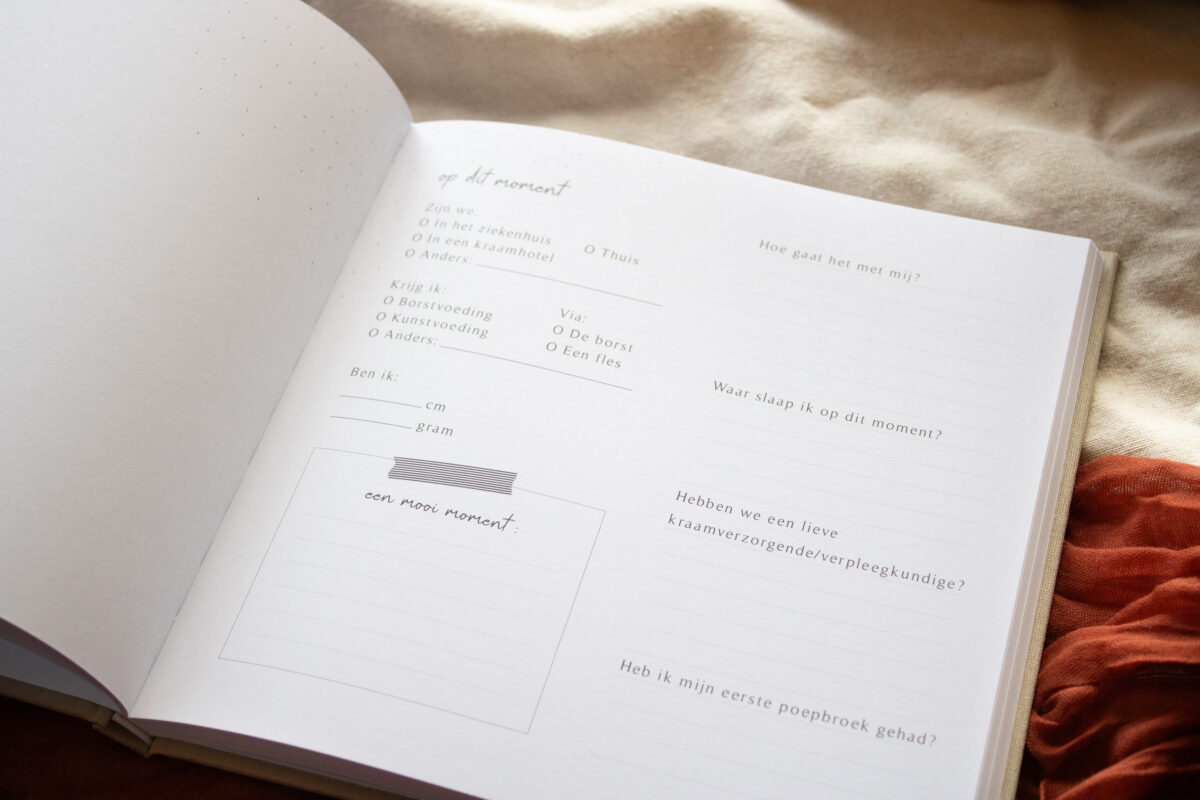 op dit moment
Zijn we:
O In het ziekenhuis O Thuis
O In een kraamhotel
O Anders:
Krijg ik: Via:
O Borstvoeding O De borst
O Kunstvoeding O Een fles
O Anders:
Ben ik:
cm
gram
een mooi moment:
Hoe gaat het met mij?
Waar slaap ik op dit moment?
Hebben we een lieve
kraamverzorgende/verpleegkundige?
Heb ik mijn eerste poepbroek gehad?